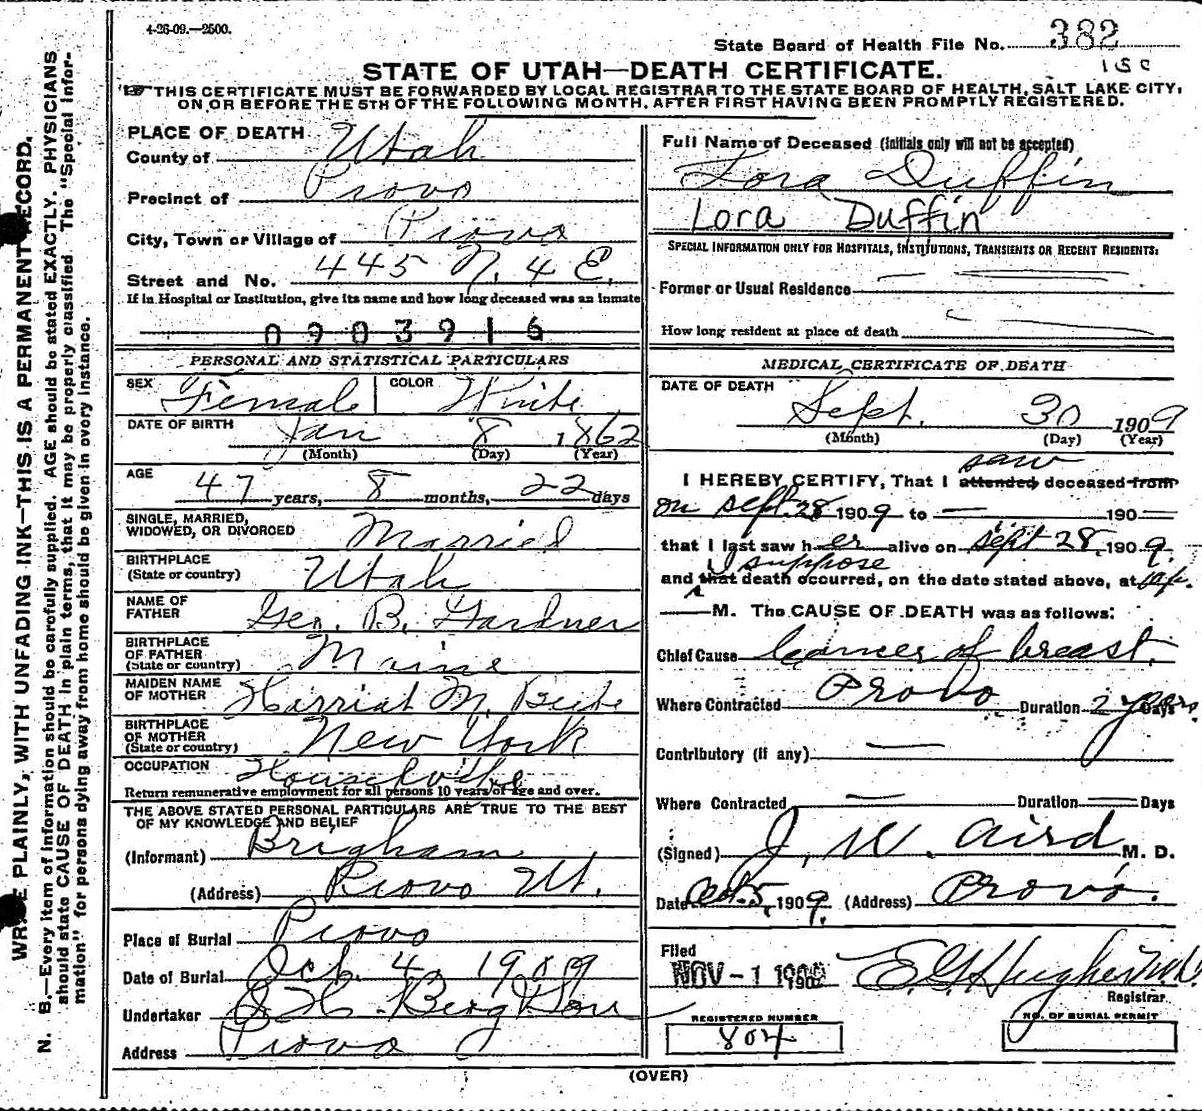 4-26-09.—2500.
State Board of Health File No. 382
STATE OF UTAH—DEATH CERTIFICATE.
THIS CERTIFICATE MUST BE FORWARDED BY LOCAL REGISTRAR TO THE STATE BOARD OF HEALTH, SALT LAKE CITY,
ON OR BEFORE THE 5TH OF THE FOLLOWING MONTH, AFTER FIRST HAVING BEEN PROMPTLY REGISTERED.
WRITE PLAINLY, WITH UNFADING INK—THIS IS A PERMANENT RECORD.
N. B.—Every item of information should be carefully supplied. AGE should be stated EXACTLY. PHYSICIANS
should state CAUSE OF DEATH in plain terms, that it may be properly classified. The "Special Infor-
mation" for persons dying away from home should be given in every instance.
PLACE OF DEATH
County of Utah
Precinct of Provo
City, Town or Village of Provo
Street and No. 445 N. 4 E.
If in Hospital or Institution, give its name and how long deceased was an inmate
0903916
PERSONAL AND STATISTICAL PARTICULARS
SEX Female COLOR White
DATE OF BIRTH Jan 8 1862
(Month) (Day) (Year)
AGE 47 years, 8 months, 22 days
SINGLE, MARRIED,
WIDOWED, OR DIVORCED Married
BIRTHPLACE
(State or country) Utah
NAME OF
FATHER Geo. B. Gardner
BIRTHPLACE
OF FATHER
(State or country) Maine
MAIDEN NAME
OF MOTHER Harriat M.
BIRTHPLACE
OF MOTHER
(State or country) New York
OCCUPATION Housewife
Return remunerative employment for all persons 10 years of age and over.
THE ABOVE STATED PERSONAL PARTICULARS ARE TRUE TO THE BEST
OF MY KNOWLEDGE AND BELIEF
(Informant) Brigham
(Address) Provo Ut.
Place of Burial Provo
Date of Burial Oct. 4, 1909
Undertaker Berg
Address Provo
Full Name of Deceased (initials only will not be accepted)
Lora Duffin
Lora Duffin
SPECIAL INFORMATION ONLY FOR HOSPITALS, INSTITUTIONS, TRANSIENTS OR RECENT RESIDENTS:
Former or Usual Residence
How long resident at place of death
MEDICAL CERTIFICATE OF DEATH
DATE OF DEATH
Sept. 30 1909
(Month) (Day) (Year)
saw
I HEREBY CERTIFY, That I attended deceased from
on Sept. 28 1909 to — 190—
that I last saw her alive on Sept 28, 1909.
I suppose
and that death occurred, on the date stated above, at
M. The CAUSE OF DEATH was as follows:
Chief Cause Cancer of breast.
Where Contracted Provo Duration 2 years Days
Contributory (if any) —
Where Contracted — Duration — Days
(Signed) J. W. Aird M. D.
Date Oct. 5, 1909. (Address) Provo.
Filed
NOV - 1
E. G. Hughes M.D.
Registrar
REGISTERED NUMBER
804
NO. OF BURIAL PERMIT
(OVER)